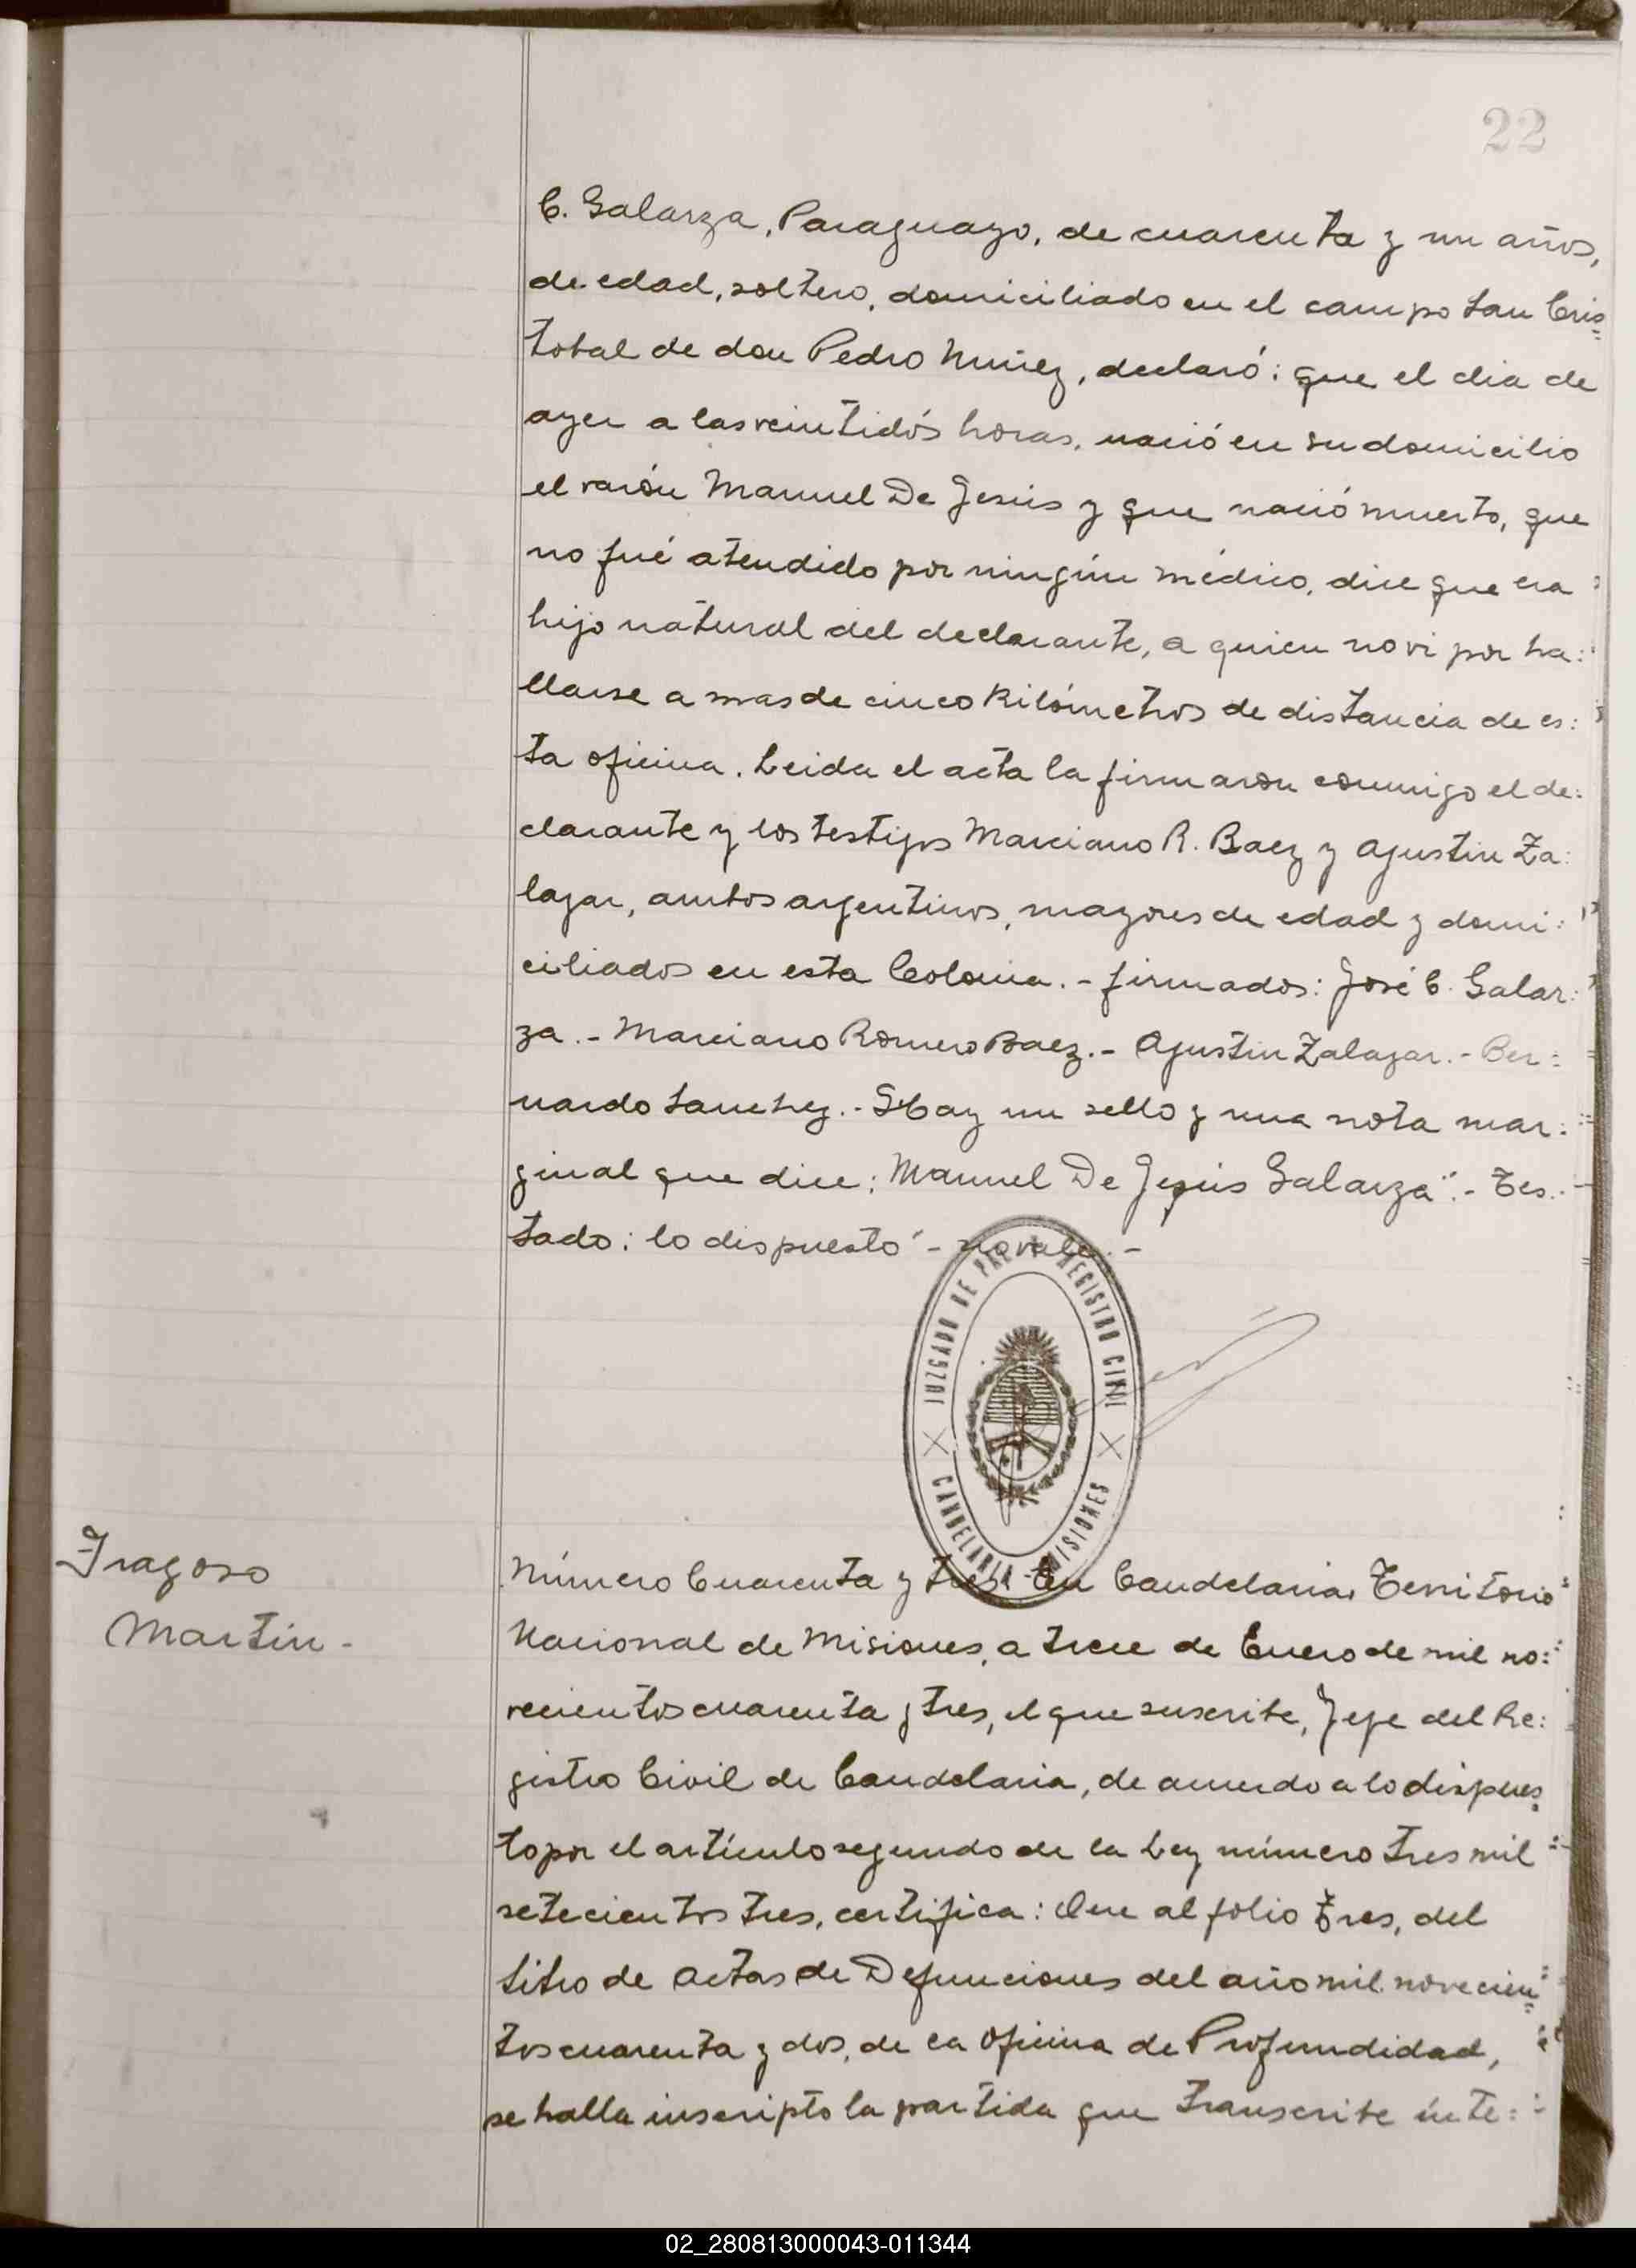 22
C. Galarza, Paraguayo, de cuarenta y un años,
de edad, soltero, domiciliado en el campo San Cris=
tobal de don Pedro Nuñez, declaró: que el dia de
ayer a las veintidós horas, nació en su domicilio
el varón Manuel De Jesús y que nació muerto, que
no fué atendido por ningún médico, dice que era
hijo natural del declarante, a quien no vi por ha:
llarse a mas de cinco Kilómetros de distancia de es:
ta oficina. Leida el acta la firmaron conmigo el de:
clarante y los testigos Marciano R. Baez y Agustin Za:
lazar, ambos argentinos, mayores de edad y domi:
ciliados en esta Colonia. - firmados: José C. Galar:
za. - Marciano Romero Baez. - Agustin Zalazar. - Ber:
nardo Sanchez. - Hay un sello y una nota mar:
ginal que dice: Manuel De Jesús Galarza". - Tes..
tado: lo dispuesto" - no vale. -
JUZGADO DE PAZ Y REGISTRO CIVIL
CANDELARIA - MISIONES
Fragoso
Martin -
Número Cuarenta y tres. En Candelaria, Territorio
Nacional de Misiones, a trece de Enero de mil no:
vecientos cuarenta y tres, el que suscribe, Jefe del Re:
gistro Civil de Candelaria, de acuerdo a lo dispues=
to por el artículo segundo de la Ley número tres mil
setecientos tres, certifica: Que al folio tres, del
libro de actas de Defunciones del año mil novecien=
tos cuarenta y dos, de la Oficina de Profundidad,
se halla inscripto la partida que transcribe ínte:
02_280813000043-011344